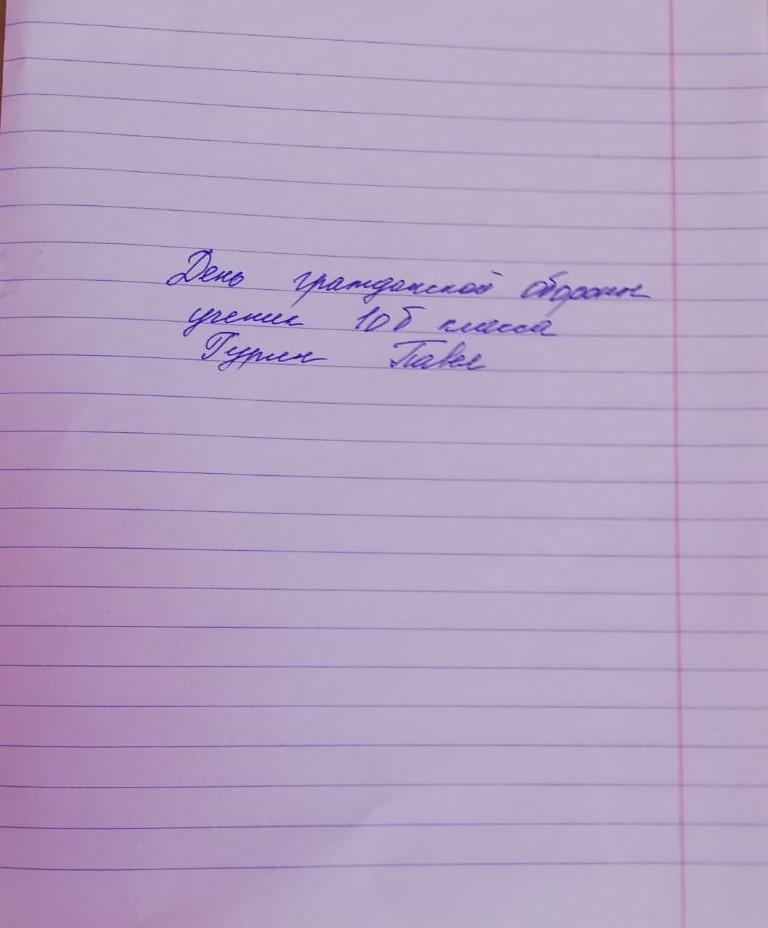 День гражданской обороны
ученик 10Б класса
Гурин Павел